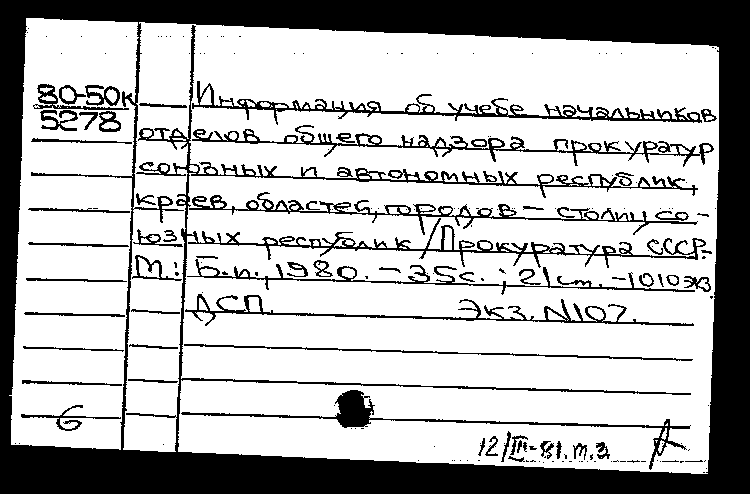 80-50к
5278
Информация об учебе начальников
отделов общего надзора прокуратур
союзных и автономных республик,
краев, областей, городов - столиц со-
юзных республик / Прокуратура СССР.-
М.: Б.и., 1980. - 35с.; 21см. -1010экз
ДСП. Экз. N107.
6
12/III-81.т.з